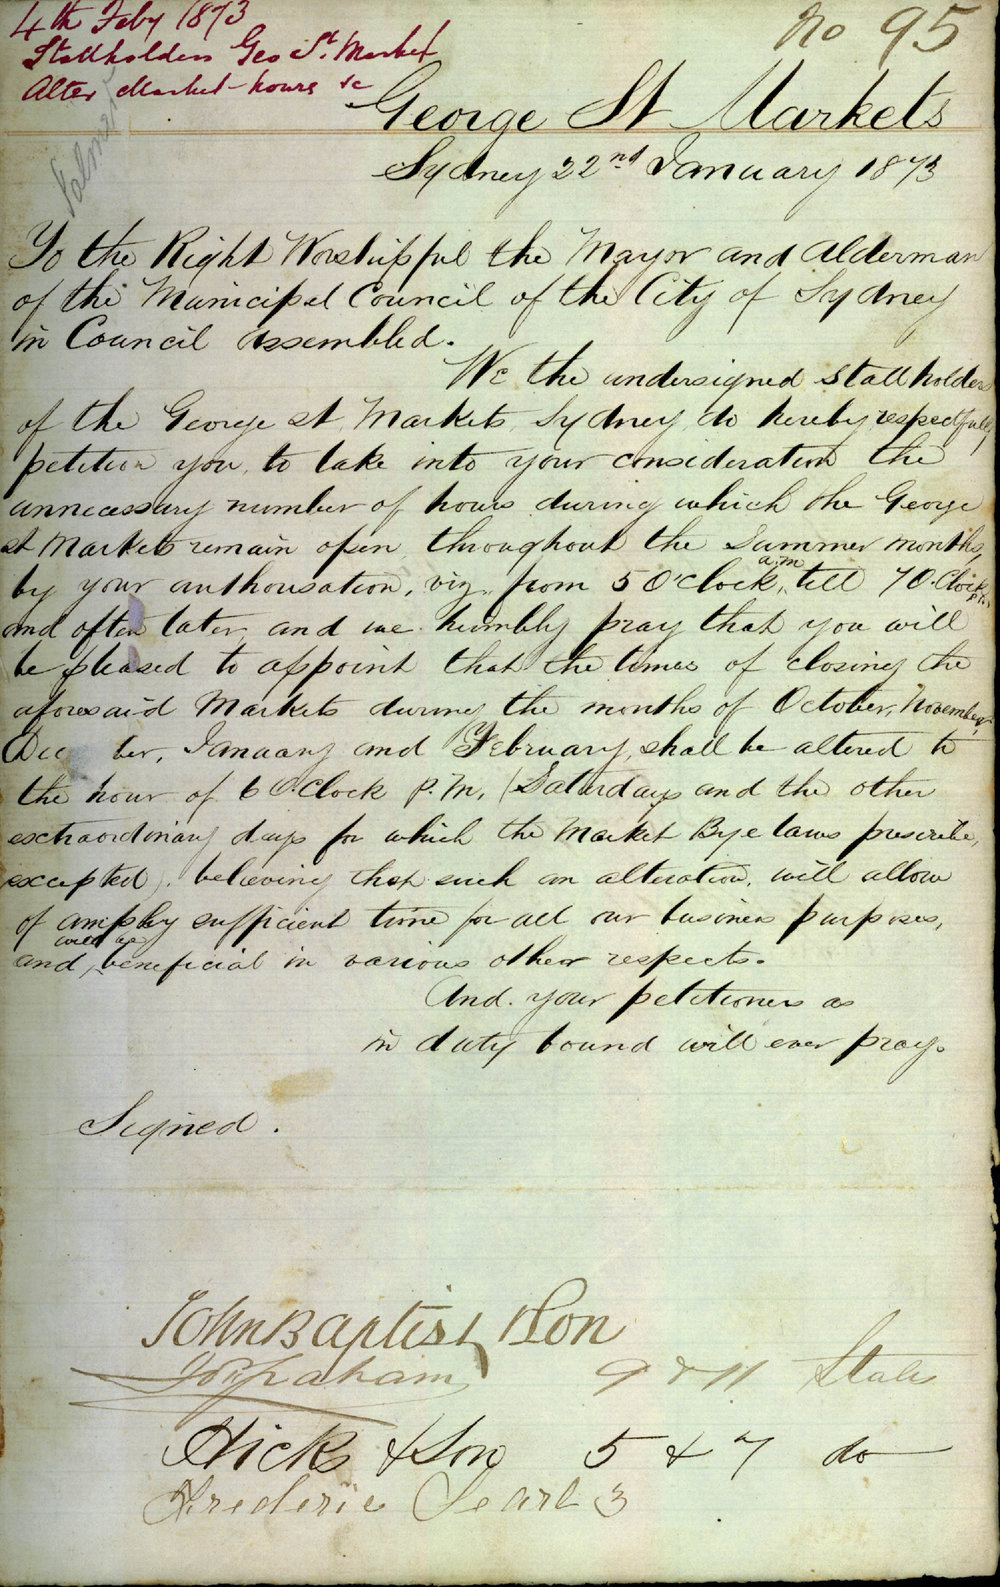 4th Feby 1873
Stallholders Geo St. Market
Alter Market-hours &c
No 95
George St Markets
Sydney 22nd January 1873
To the Right Worshipful the Mayor and Alderman
of the Municipal Council of the City of Sydney
in Council assembled.
We the undersigned Stallholders
of the George st Markets Sydney do hereby respectfully
petition you to take into your consideration the
unnecessary number of hours during which the George
st Markets remain open throughout the Summer months
by your authorisation, viz. from 5 O'clock a.m till 7 O.Clock P.M.
and often later, and we humbly pray that you will
be pleased to appoint that the times of closing the
aforesaid Markets during the months of October, November
Dec ber, January and February, shall be altered to
the hour of 6 O'Clock P.M, (Saturdays and the other
extraordinary days for which the Market Bye laws prescribe,
excepted). believing that such an alteration, will allow
of amply sufficient time for all our business purposes,
and, will be beneficial in various other respects.
And your petitioners as
in duty bound will ever pray.
Signed.
John Baptist & Son
9 & 11 Stalls
Hicks & Son 5 & 7 do
Frederic Searl 3